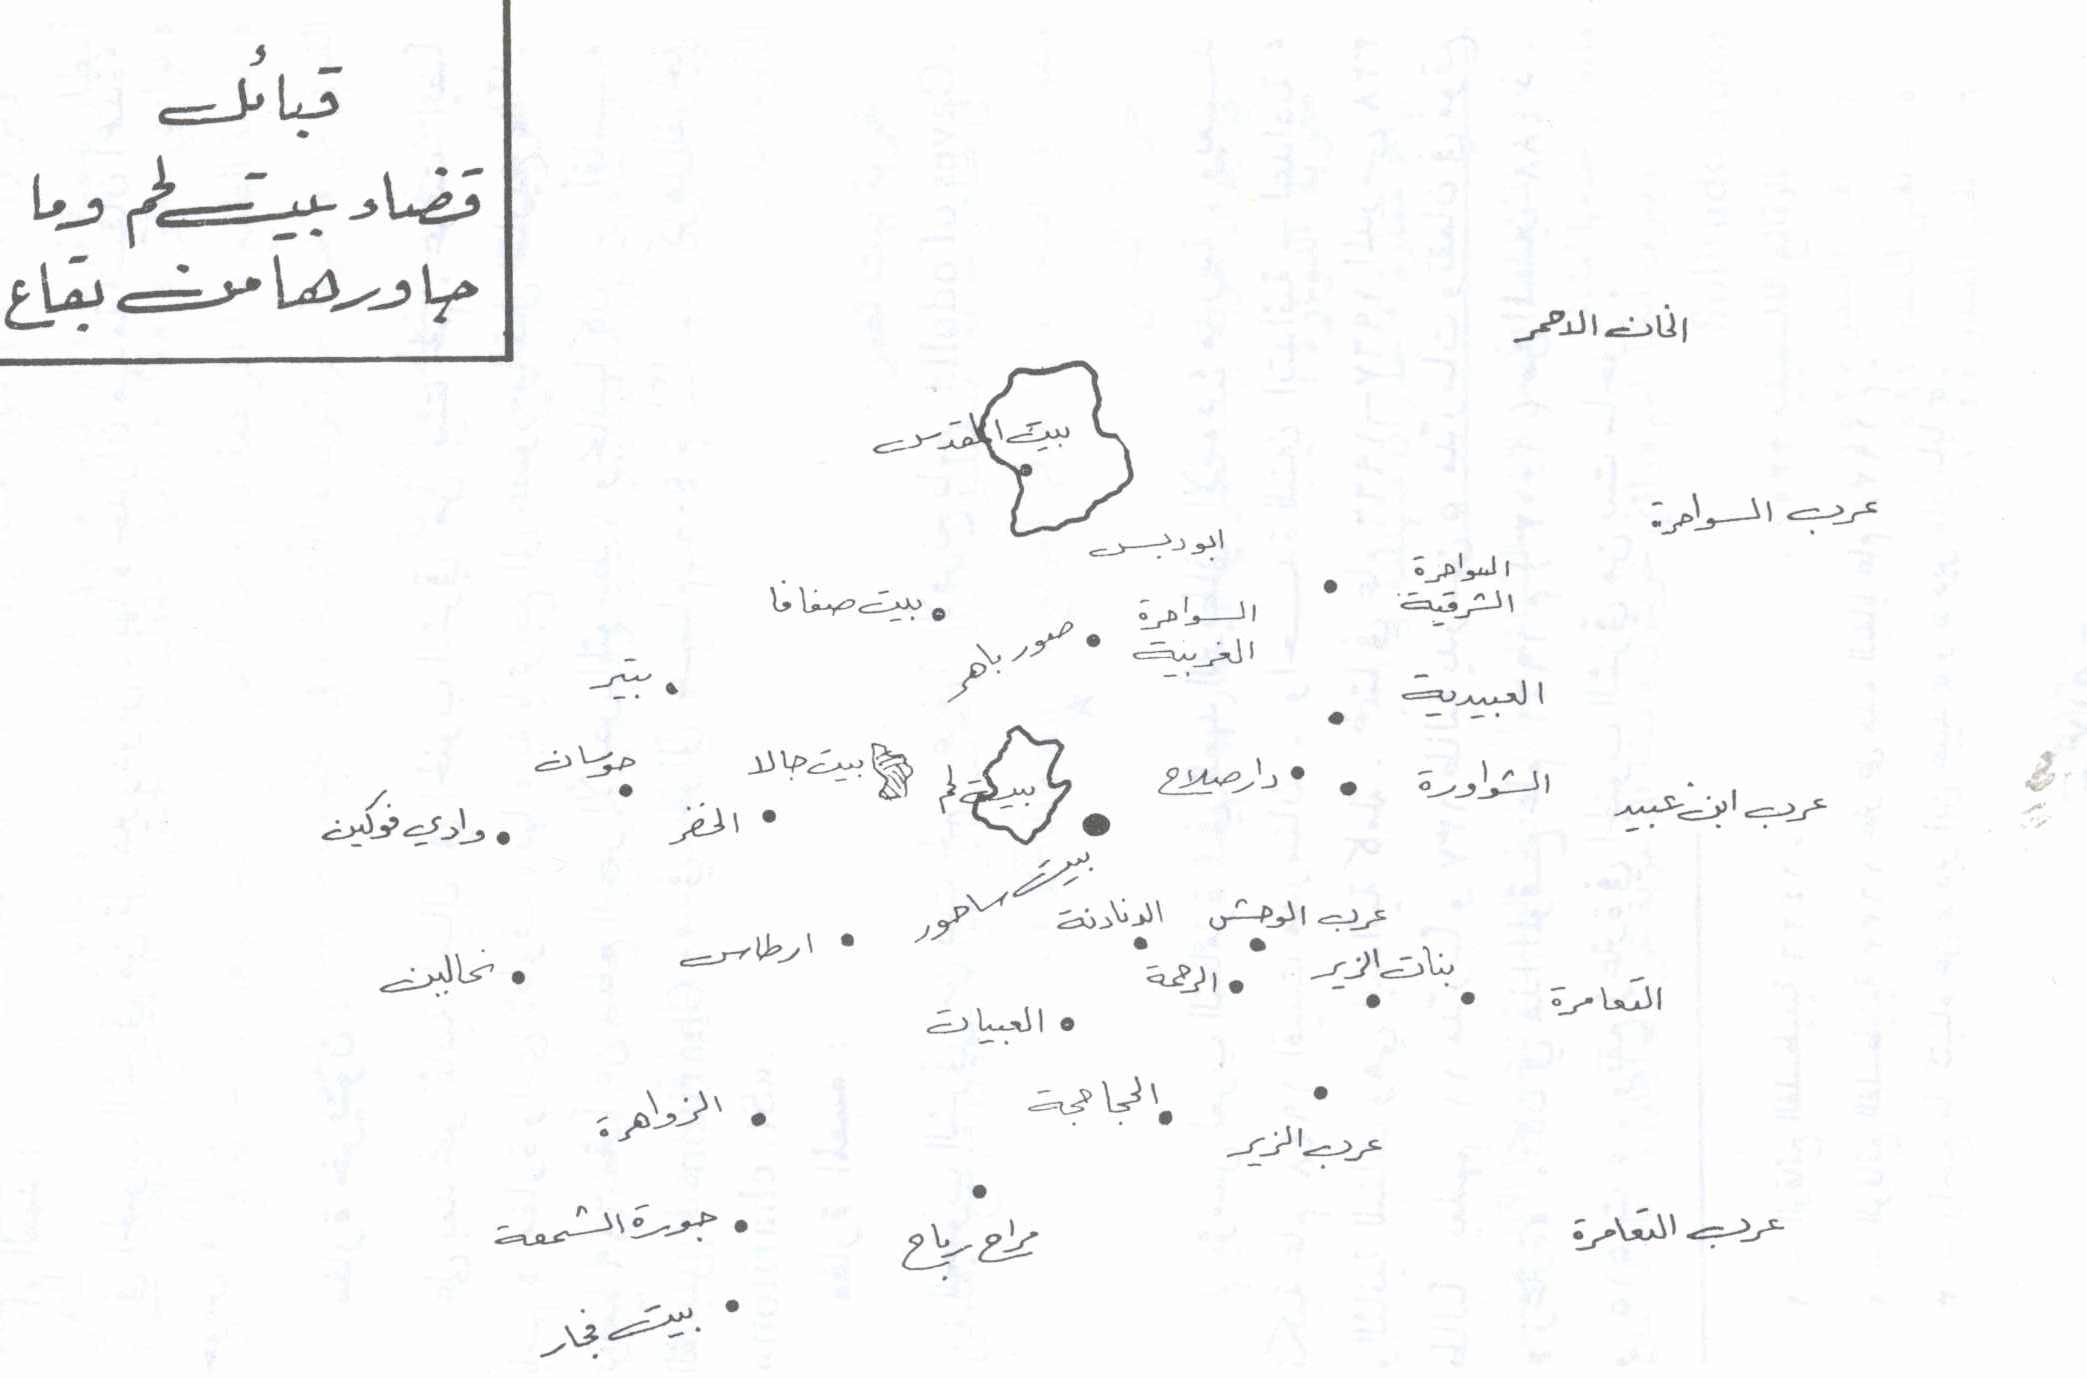 قبائل
قضاء بيت لحم وما
جاورها من بقاع
الخان الاحمر
بيت المقدس
عرب السواحرة
ابوديس
السواحرة
الشرقية
بيت صفافا
السواحرة
الغربية
صور باهر
بتير
العبيدية
حوسان
بيت جالا
بيت لحم
دار صلاح
الشواورة
عرب ابن عبيد
وادي فوكين
الخضر
بيت ساحور
الدنادنة
عرب الوحش
ارطاس
نحالين
الرحمة
بنات الزير
التعامرة
العبيات
الزواهرة
الحجاحجة
عرب الزير
جورة الشمعة
مراح رباح
عرب التعامرة
بيت فجار